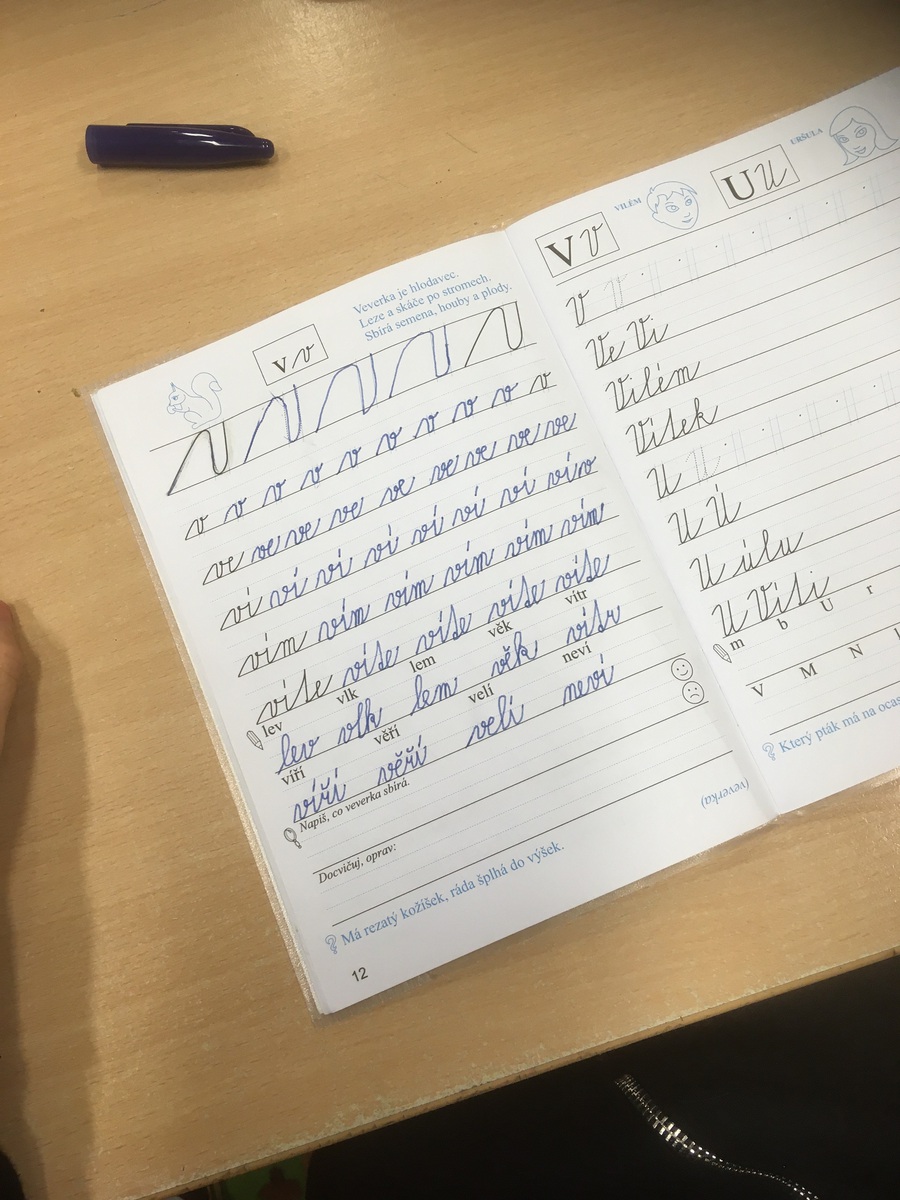 Veverka je hlodavec.
Leze a skáče po stromech.
Sbírá semena, houby a plody.
v v
v v v v v v v v v v
ve ve ve ve ve ve ve ve ve
ví ví ví ví ví ví ví ví v
vím vím vím vím vím vím
víte víte víte víte víte
lev vlk lem věk vítr
lev vlk lem věk vítr
víří věří velí neví
víří věří velí neví
Napiš, co veverka sbírá.
Docvičuj, oprav:
(veverka)
Má rezatý kožíšek, ráda šplhá do výšek.
12
V v VILÉM U U URŠULA
V
Ve Vi
Vilém
Vítek
U
U Ú
U úlu
U Víti
m b U r
V M N
Který pták má na